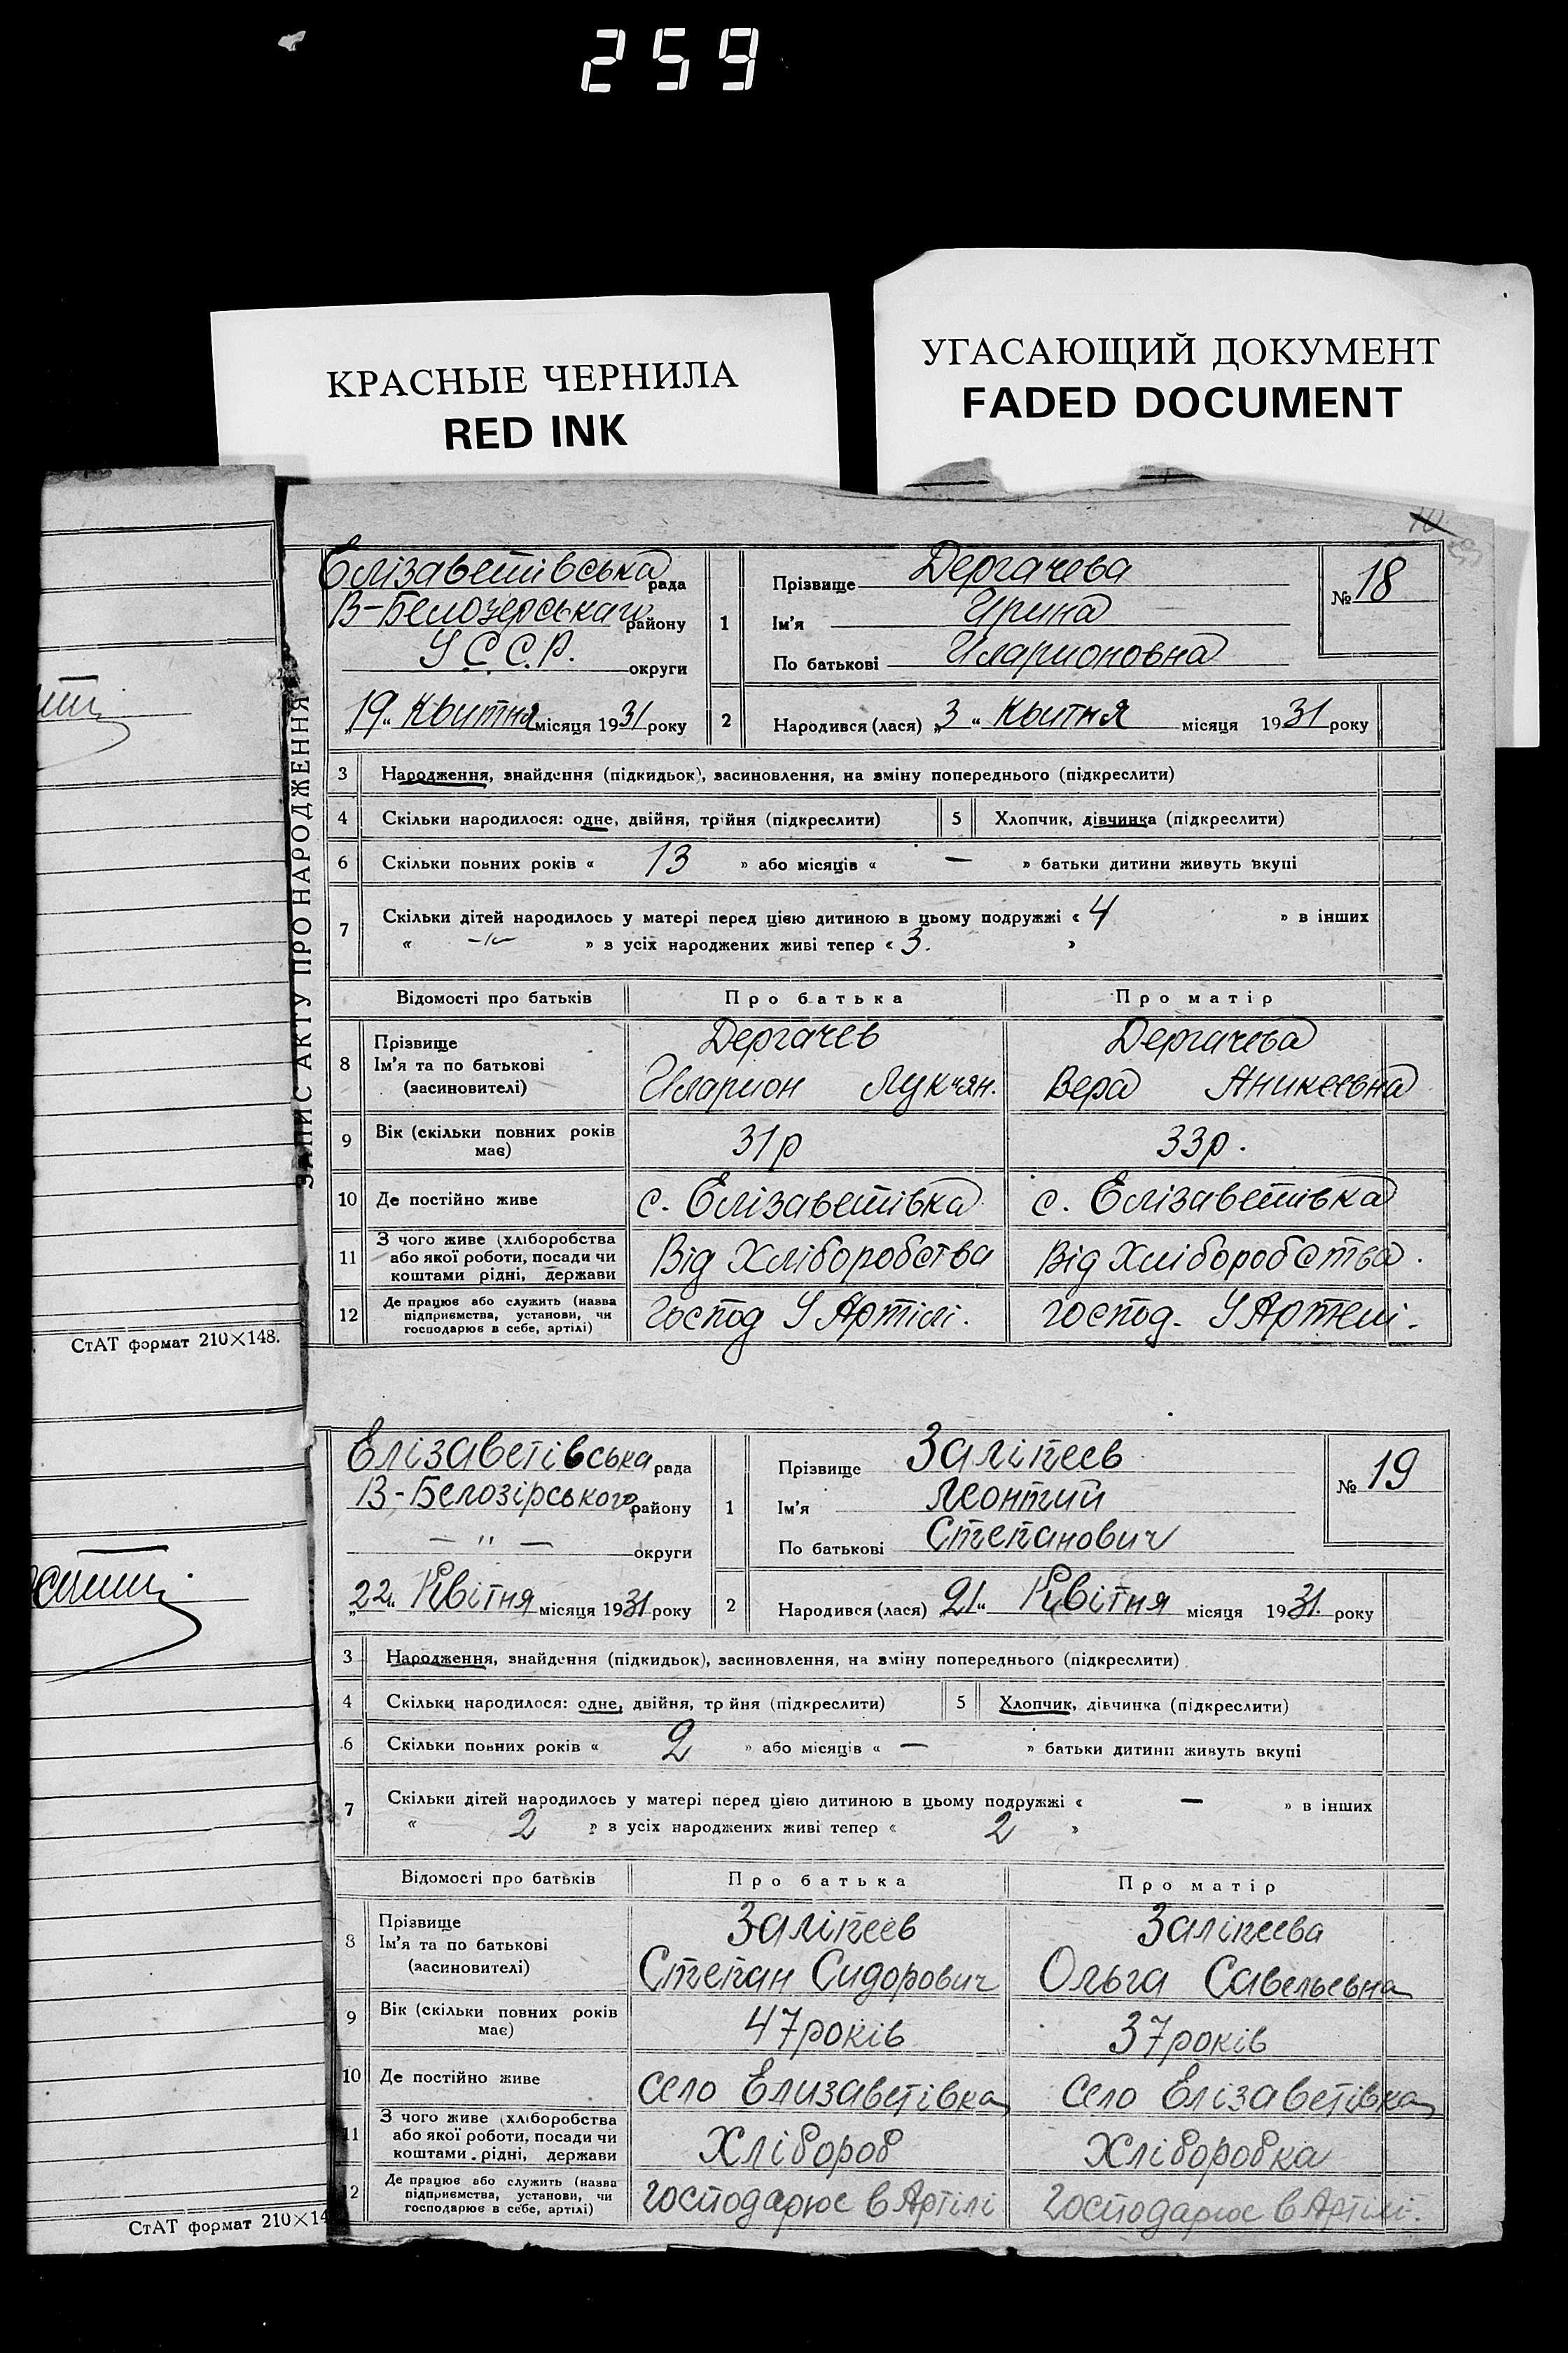 259
КРАСНЫЕ ЧЕРНИЛА
RED INK
УГАСАЮЩИЙ ДОКУМЕНТ
FADED DOCUMENT
10
ЗАПИС АКТУ ПРО НАРОДЖЕННЯ
Єлізаветівська рада
В-Белозерськаго району
У.С.С.Р. округи
„19“ Квитня місяця 1931 року
1 Прізвище Дергачева
Ім'я Ирина
По батькові Иларионовна
№ 18
2 Народився (лася) „3“ Квитня місяця 1931 року
3 Народження, знайдення (підкидьок), засиновлення, на зміну попереднього (підкреслити)
4 Скільки народилося: одне, двійня, трійня (підкреслити) 5 Хлопчик, дівчинка (підкреслити)
6 Скільки повних років « 13 » або місяців « — » батьки дитини живуть вкупі
7 Скільки дітей народилось у матері перед цією дитиною в цьому подружжі « 4 » в інших
« -"- » з усіх народжених живі тепер « 3. »
Відомості про батьків Про батька Про матір
8 Прізвище Дергачев Дергачева
Ім'я та по батькові Иларион Лукчян. Вера Аникеевна
(засиновителі)
9 Вік (скільки повних років має) 31р 33р.
10 Де постійно живе с. Єлізаветівка с. Єлізаветівка
11 З чого живе (хліборобства
або якої роботи, посади чи Від Хліборобства Від Хліборобства.
коштами рідні, держави
12 Де працює або служить (назва
підприємства, установи, чи Господ У Артілі. господ. У Артелі.
господарює в себе, артілі)
СтАТ формат 210×148.
Єлізаветівська рада
В-Белозірського району
— " — округи
„22“ Квітня місяця 1931 року
1 Прізвище Заліпеев
Ім'я Леонтий
По батькові Степанович
№ 19
2 Народився (лася) 21“ Квітня місяця 1931. року
3 Народження, знайдення (підкидьок), засиновлення, на зміну попереднього (підкреслити)
4 Скільки народилося: одне, двійня, тр йня (підкреслити) 5 Хлопчик, дівчинка (підкреслити)
6 Скільки повних років « 2 » або місяців « — » батьки дитини живуть вкупі
7 Скільки дітей народилось у матері перед цією дитиною в цьому подружжі « — » в інших
« 2 » з усіх народжених живі тепер « 2 »
Відомості про батьків Про батька Про матір
8 Прізвище Заліпеев Заліпеева
Ім'я та по батькові Степан Сидорович Ольга Савельевна
(засиновителі)
9 Вік (скільки повних років має) 47 років 37 років
10 Де постійно живе село Елизаветівка село Елізаветівка
11 З чого живе (хліборобства
або якої роботи, посади чи Хлібороб Хліборобка
коштами рідні, держави
12 Де працює або служить (назва
підприємства, установи, чи господарює в Артілі господарює в Артілі.
господарює в себе, артілі)
СтАТ формат 210×14